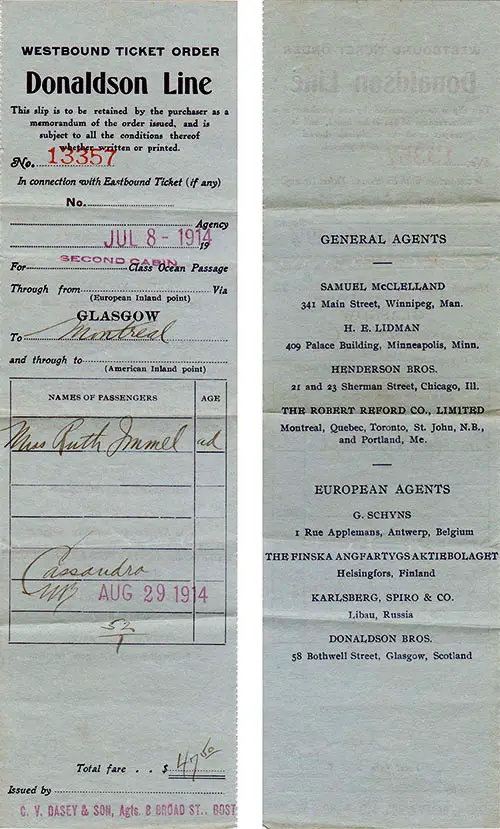 WESTBOUND TICKET ORDER
Donaldson Line
This slip is to be retained by the purchaser as a
memorandum of the order issued, and is
subject to all the conditions thereof
whether written or printed.
No. 13357
In connection with Eastbound Ticket (if any)
No.
Agency
JUL 8 - 1914 19
SECOND CABIN
For Class Ocean Passage
Through from Via
(European Inland point)
GLASGOW
To Montreal
and through to
(American Inland point)
NAMES OF PASSENGERS AGE
Miss Ruth Immel ad
Cassandra
WB AUG 29 1914
52
1
Total fare . . $ 47 50
Issued by
C. V. DASEY & SON, Agts. 8 BROAD ST., BOST
GENERAL AGENTS
SAMUEL McCLELLAND
341 Main Street, Winnipeg, Man.
H. E. LIDMAN
409 Palace Building, Minneapolis, Minn.
HENDERSON BROS.
21 and 23 Sherman Street, Chicago, Ill.
THE ROBERT REFORD CO., LIMITED
Montreal, Quebec, Toronto, St. John, N.B.,
and Portland, Me.
EUROPEAN AGENTS
G. SCHYNS
1 Rue Applemans, Antwerp, Belgium
THE FINSKA ANGFARTYGS AKTIEBOLAGET
Helsingfors, Finland
KARLSBERG, SPIRO & CO.
Libau, Russia
DONALDSON BROS.
58 Bothwell Street, Glasgow, Scotland